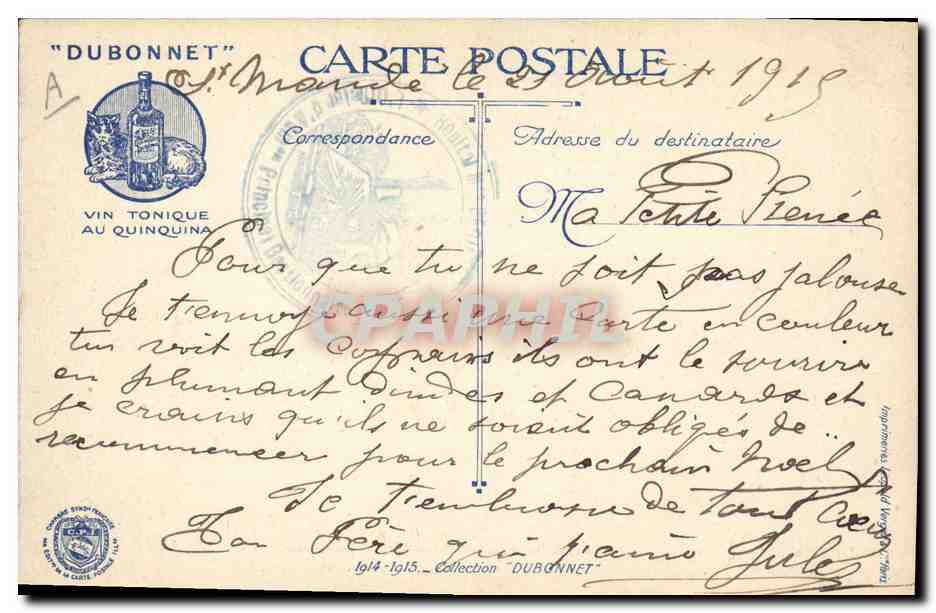 "DUBONNET"
CARTE POSTALE
St Mandé le 21 Août 1915
A
Correspondance
Adresse du destinataire
VIN TONIQUE
AU QUINQUINA
Ma Petite Renée
Pour que tu ne soit pas jalouse
Je t'envoye aussi une Carte en couleur
tu voit les Copains ils ont le sourire
en plumant dindes et Canards et
je crains qu'ils ne soient obligés de..
recommencer pour le prochain Noel
Je t'embrasse de tout Cœur
Ton Père qui t'aime Jules
1914-1915._ Collection "DUBONNET"
CPAPHIL
CHAMBRE SYND.LE FRANÇAISE